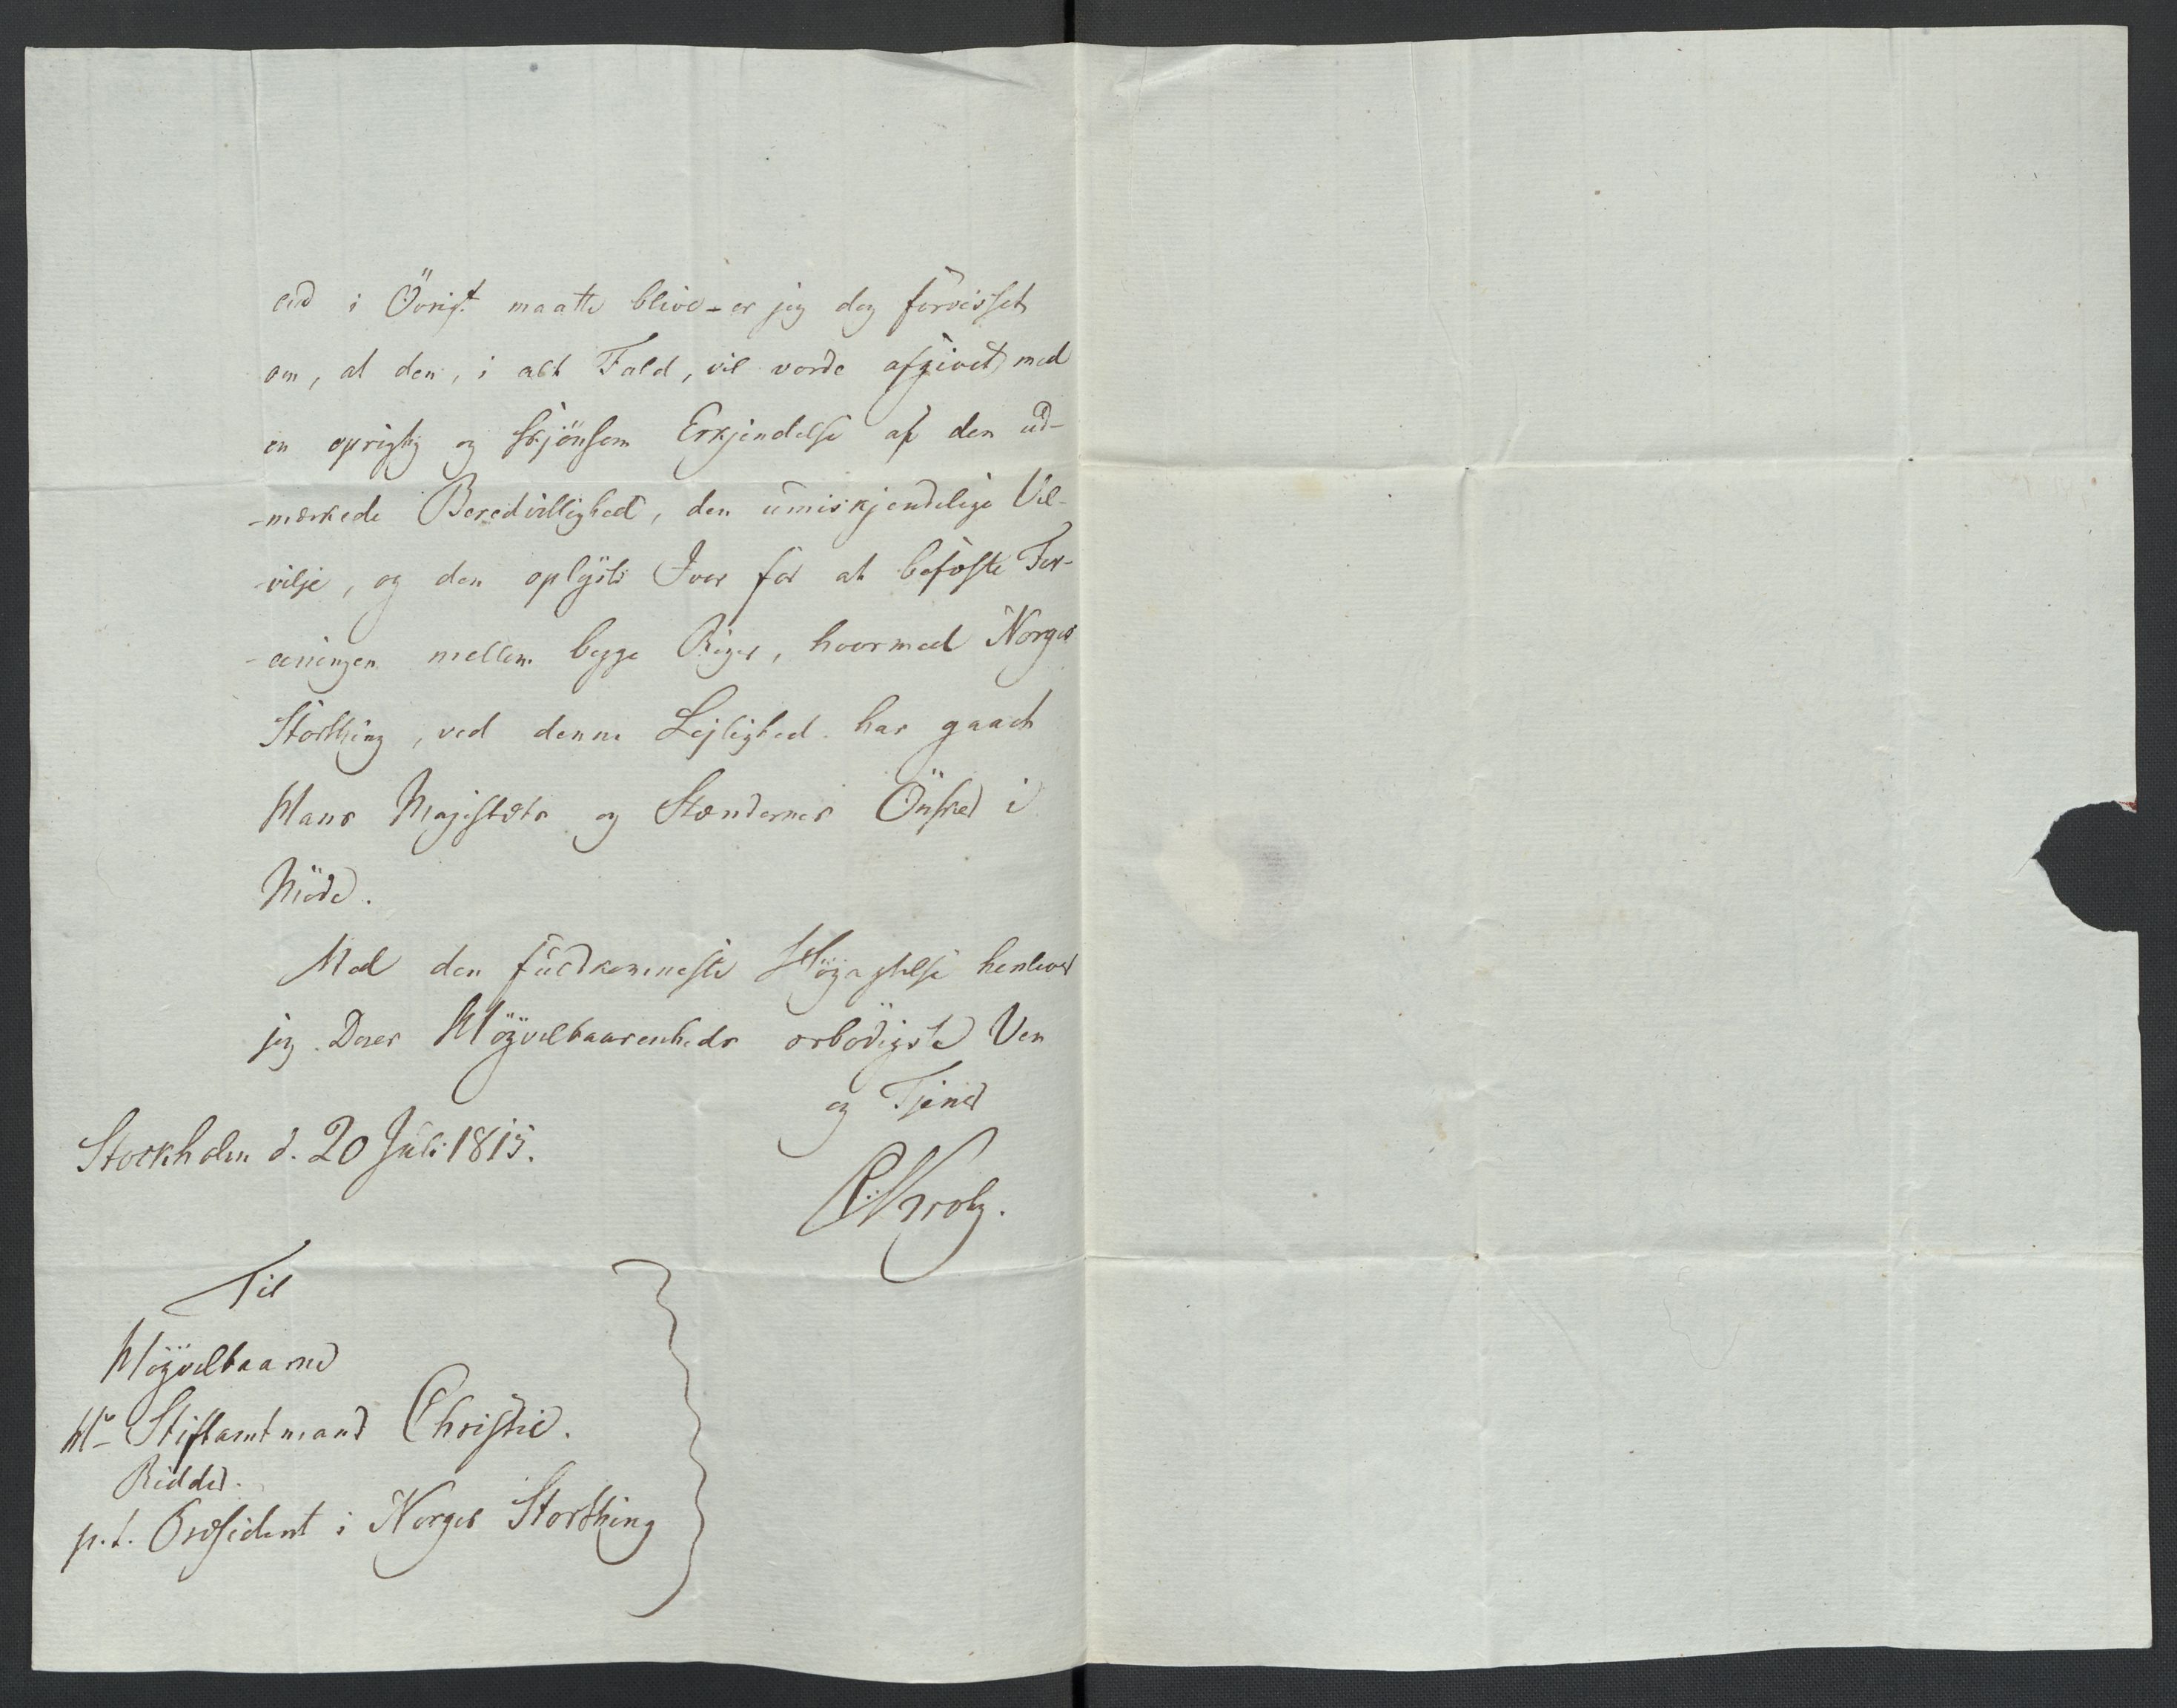 end i Övrigt maatte blive - er jeg dog forvisset
om, at den, i alt Fald, vil vorde afgivet med
en oprigtig og skjönsom Erkjendelse af den ud-
-mærkede Beredvillighed, den umiskjendelige Vel-
-vilje, og den oplyste Iver for at befæste For-
-eeningen mellem begge Riger, hvormed Norges
Storthing, ved denne Lejlighed har gaaet
Hans Majestæts og Stændernes Önsker i
Möde.
Med den fuldkomneste Högagtelse henlever
jeg Deres Höyvelbaarenheds ærbödigste Ven
og Tjener
Stockholm d. 20 Juli 1815.
CKrog.
Til
Höyvelbaarne
Hr Stiftamtmand Christie.
Ridder.
p.t. Præsident i Norges Storthing